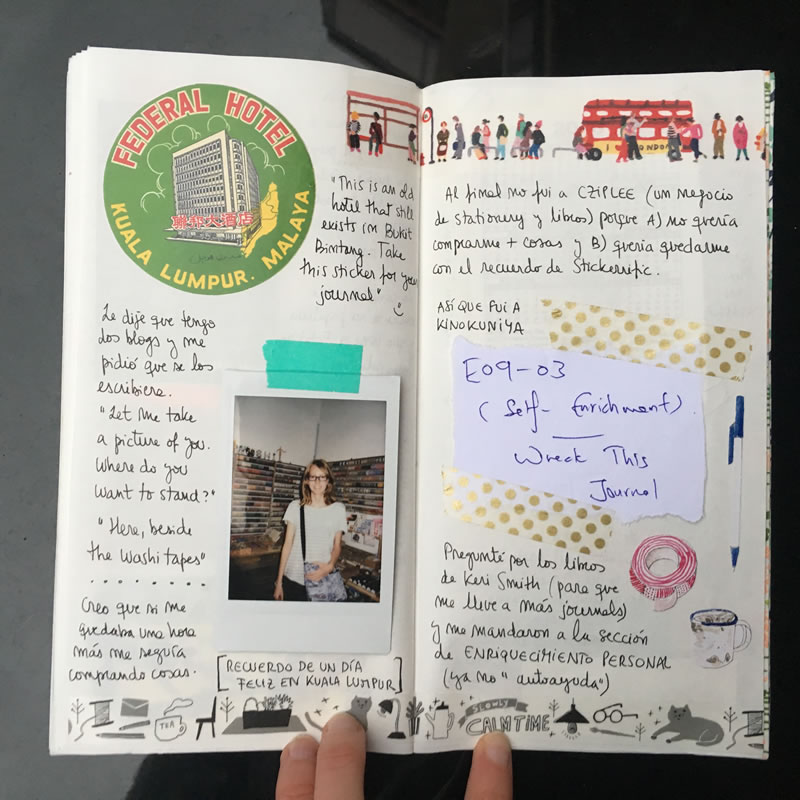 FEDERAL HOTEL
聯邦大酒店
KUALA LUMPUR. MALAYA
"This is an old
hotel that still
exists in Bukit
Bintang. Take
this sticker for your
journel"
Le dije que tengo
dos blogs y me
pidió que se los
escribiera.
"Let me take
a picture of you.
Where do you
want to stand?"
"Here, beside
the washi tapes"
Creo que si me
quedaba una hora
más me seguía
comprando cosas.
[RECUERDO DE UN DÍA
FELIZ EN KUALA LUMPUR]
TEA
LONDON
Al final no fui a CZIPLEE (un negocio
de stationery y libros) porque A) no quería
comprarme + cosas y B) quería quedarme
con el recuerdo de Stickerrific.
ASÍ QUE FUI A
KINOKUNIYA
E09-03
(Self-Enrichment).
Wreck This
Journal
Pregunté por los libros
de Keri Smith (para que
me lleve a más journals)
y me mandaron a la sección
de ENRIQUECIMIENTO PERSONAL
(ya no "autoayuda")
SLOWLY
CALM TIME